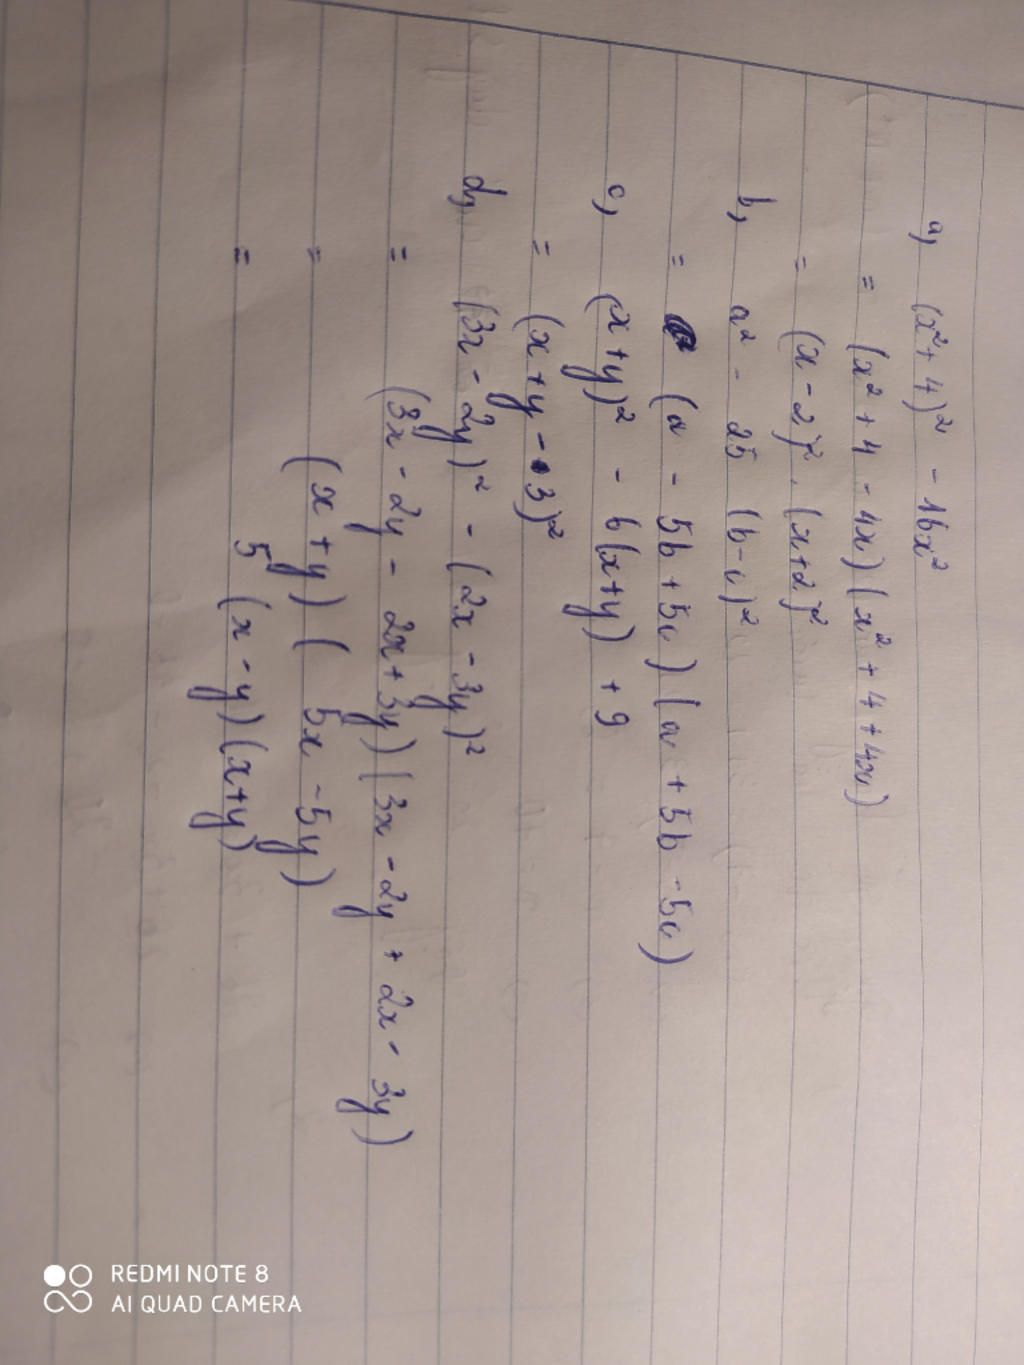 a, (x²+4)² - 16x²
= (x²+4-4x)(x²+4+4x)
= (x-2)².(x+2)²
b, a² - 25 (b-c)²
= (a - 5b+5c)(a+5b-5c)
c, (x+y)² - 6(x+y) +9
= (x+y-3)²
d, (3x-2y)² - (2x-3y)²
= (3x-2y-2x+3y)(3x-2y+2x-3y)
= (x+y)(5x-5y)
= 5(x-y)(x+y)
REDMI NOTE 8
AI QUAD CAMERA